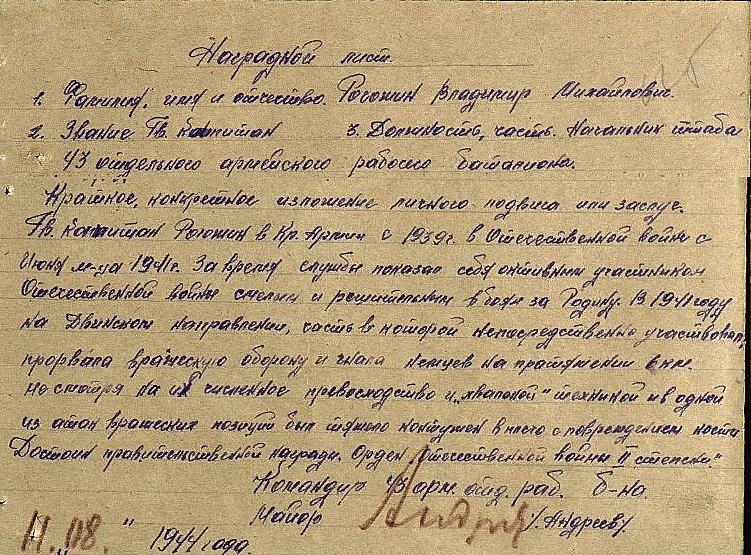 Наградной лист.
1. Фамилия, имя и отчество. Рогожин Владимир Михайлович.
2. Звание Гв. капитан 3. Должность, часть. Начальник штаба
43 отдельного армейского рабочего баталиона.
Краткое, конкретное изложение личного подвига или заслуг.
Гв. капитан Рогожин в Кр. Армии с 1939г. в Отечественной войны с
Июня м-ца 1941г. За время службы показал себя активным участником
Отечественной войны смелым и решительным в боях за Родину. В 1941 году
на Двинском направлении, часть в которой непосредственно участвовал,
прорвала вражескую оборону и гнала немцев на протяжении 6 км.
не смотря на их численное превосходство и „хваленой" техникой и в одной
из атак вражеских позиций был тяжело контужен в плечо с повреждением кости
Достоин правительственной награды. Орден „Отечественной войны II степени."
Командир 43 арм. отд. раб. б-на.
Майор /Андреев/.
11.08. " 1944 года.